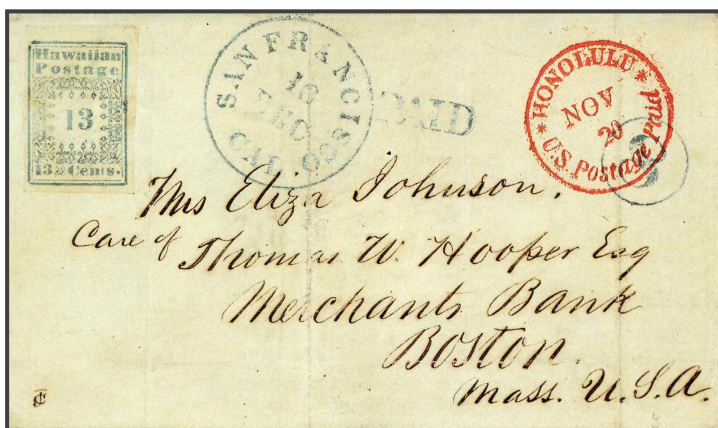 Hawaiian
Postage
13
13 Cents.
SAN FRANCISCO
16
DEC
CAL.
PAID
HONOLULU
NOV
20
U.S. Postage Paid
Mrs Eliza Johnson,
Care of Thomas W. Hooper Esq
Merchants Bank
Boston.
Mass. U.S.A.